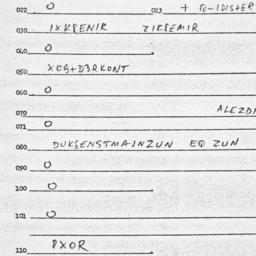 022 O 023 + Q-IDISTER
030. IXKSENIR ZIKSEMIR
040 O
050 XOG+DZRKONT
060 O
070 ALEZDI
071 O
080 DUKSENSTMAINZUN EQ ZUN
090 O
100 O
101 O
110 PXOR